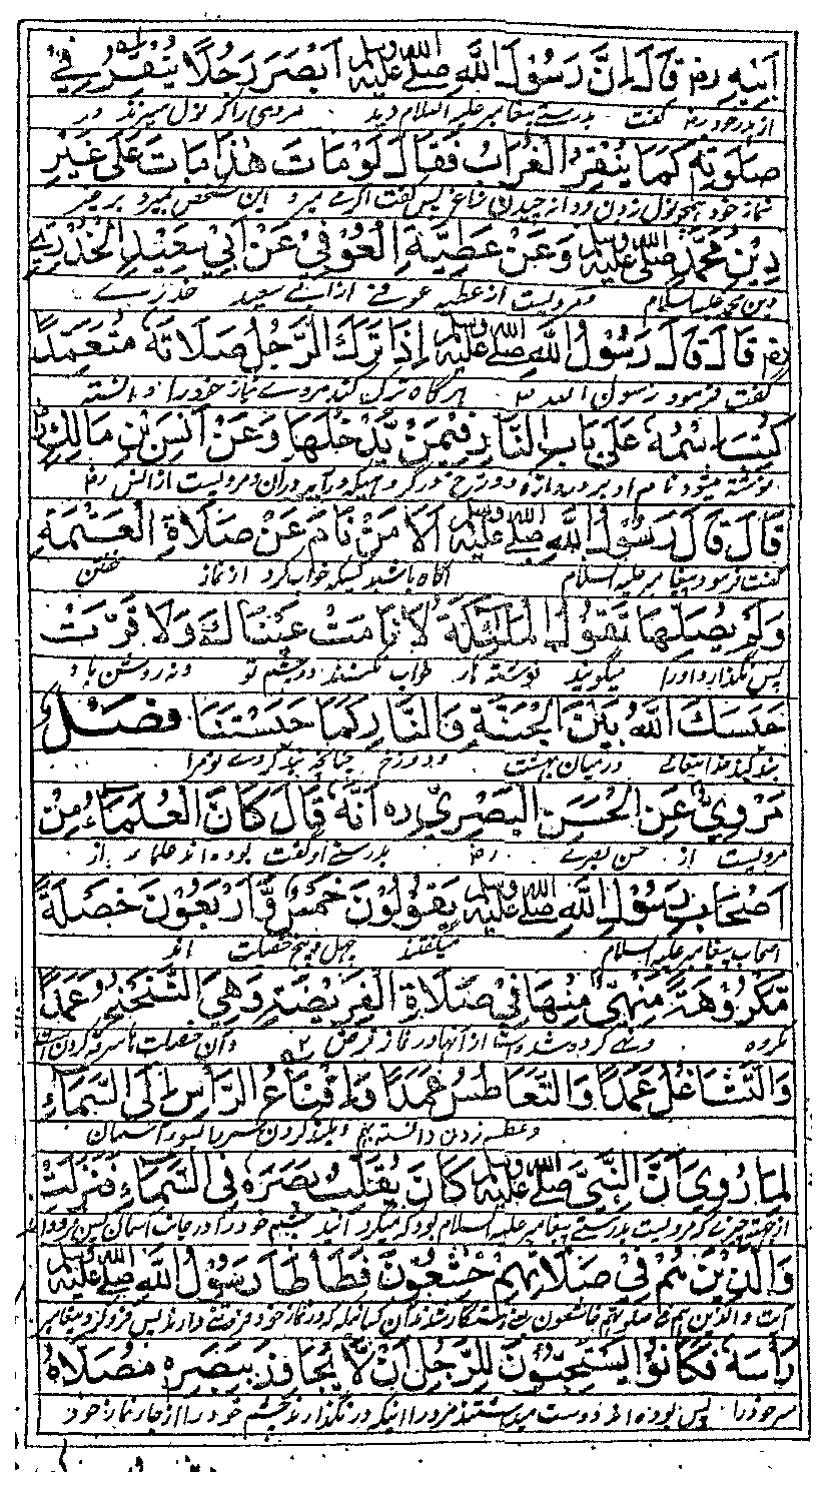 اَبِيْهِ رض قَالَ اِنَّ رَسُوْلَ اللّٰهِ صلى الله عليه وسلم اَبْصَرَ رَجُلًا يَنْقُرُ فِيْ
از پدر خود رض گفت بدرستى پيغامبر عليه السلام ديد مردى را كه نول ميزند در
صَلٰوتِهٖ كَمَا يَنْقُرُ الْغُرَابُ فَقَالَ لَوْ مَاتَ هٰذَا مَاتَ عَلٰى غَيْرِ
نماز خود همچو نول زدن و دانه چيدن زاغ پس گفت اگر مى ميرد اين شخص بميرد بر غير
دِيْنِ مُحَمَّدٍ صلى الله عليه وسلم وَعَنْ عَطِيَّةَ الْعُوْفِيْ عَنْ اَبِيْ سَعِيْدِ الْخُدْرِيِّ
دين محمد عليه السلام و مرويست از عطيه عوفى از ابى سعيد خدرى
رض قَالَ قَالَ رَسُوْلُ اللّٰهِ صلى الله عليه وسلم اِذَا تَرَكَ الرَّجُلُ صَلَاتَهٗ مُتَعَمِّدًا
گفت فرمود رسول الله هر گاه ترك كند مردے نماز خود را دانسته
كُتِبَ اسْمُهٗ عَلٰى بَابِ النَّارِ فِيْمَنْ يَّدْخُلُهَا وَعَنْ اَنَسِ بْنِ مَالِكٍ رض
نوشته ميشود نام او بر دروازه دوزخ در گروهيكه در آيد در ان و مرويست از انس رض
قَالَ قَالَ رَسُوْلُ اللّٰهِ صلى الله عليه وسلم اَلَا مَنْ نَامَ عَنْ صَلَاةِ الْعَتَمَةِ
گفت فرمود پيغامبر عليه السلام آگاه باشيد كسيكه خواب كرد از نماز خفتن
وَلَمْ يُصَلِّهَا تَقُوْلُ الْمَلٰئِكَةُ لَا نَامَتْ عَيْنَاكَ وَلَا قَرَّتْ
پس نگذارد او را ميگويند فرشته گان خواب نكنند دو چشم تو و نه روشن باد
حَبَسَكَ اللّٰهُ بَيْنَ الْجَنَّةِ وَالنَّارِ كَمَا حَبَسْتَنَا فَصْلٌ
بند كند خدايتعالى درميان بهشت و دوزخ چنانچه بند كردى تو مرا
مَرْوِيٌّ عَنِ الْحَسَنِ الْبَصْرِيِّ رح اَنَّهٗ قَالَ كَانَ الْعُلَمَاءُ مِنْ
مرويست از حسن بصرى رض بدرستى او گفت بوده اند علماء از
اَصْحَابِ رَسُوْلِ اللّٰهِ صلى الله عليه وسلم يَقُوْلُوْنَ خَمْسٌ وَّاَرْبَعُوْنَ خَصْلَةً
اصحاب پيغامبر عليه السلام ميگفتند چهل و پنج خصلت اند
مَكْرُوْهَةً مَنْهِيٌّ مِنْهَا فِيْ صَلَاةِ الْفَرِيْضَةِ وَهِيَ التَّنَحْنُحُ عَمَدًا
مكروه و نهى كرده شده است از آنها در نماز فرض و آن خصلت ها سرفه كردن است
وَالتَّشَاغُلُ عَمَدًا وَالتَّعَاطُسُ عَمَدًا وَاِقْنَاعُ الرَّأْسِ اِلَى السَّمَاءِ
و عطسه زدن دانسته هم و بلند كردن سر را بسوى آسمان
لِمَا رُوِيَ اَنَّ النَّبِيَّ صلى الله عليه وسلم كَانَ يُقَلِّبُ بَصَرَهٗ فِى السَّمَاءِ فَنَزَلَتْ
از جهت چيزى كه مرويست بدرستى پيغامبر عليه السلام بود كه ميگردانيد چشم خود را در جانب آسمان پس فرود آمد
وَالَّذِيْنَ هُمْ فِيْ صَلَاتِهِمْ خٰشِعُوْنَ فَطَأْطَأَ رَسُوْلُ اللّٰهِ صلى الله عليه وسلم
آيت والذين هم فى صلوتهم خاشعون يعنى رستگار شدند آن كسانيكه در نماز خود فروتنى دارند پس فرو كرد پيغامبر
رَأْسَهٗ فَكَانُوْا يَسْتَحِبُّوْنَ لِلرَّجُلِ اَنْ لَّا يُجَاوِزَ بِبَصَرِهٖ مُصَلَّاهُ
سر خود را پس بوده اند دوست ميداشتند مرد را اينكه در نگذارند چشم خود را از جاى نماز خود